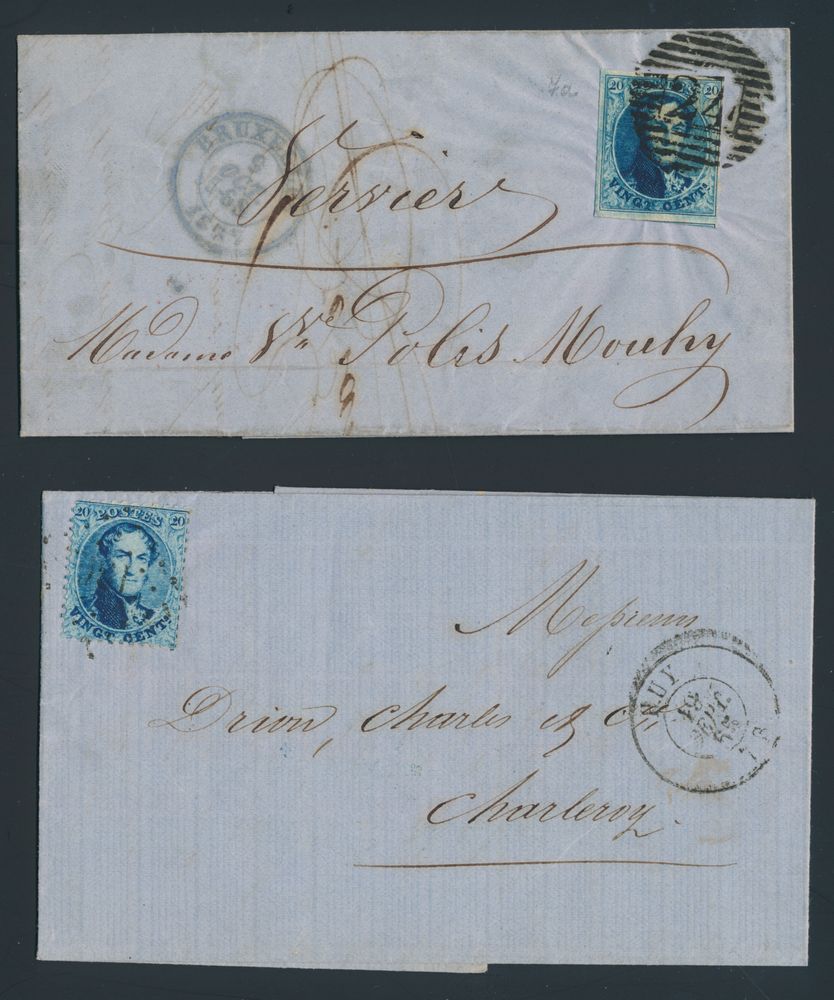 7a
20 20
VINGT CENTS
22
BRUXE
Verviers
Madame Vve Polis Mouhy
20 POSTES 20
VINGT CENTS
Messieurs
Drion, Charles & Cie
HUY
SEPT.
Charleroy.